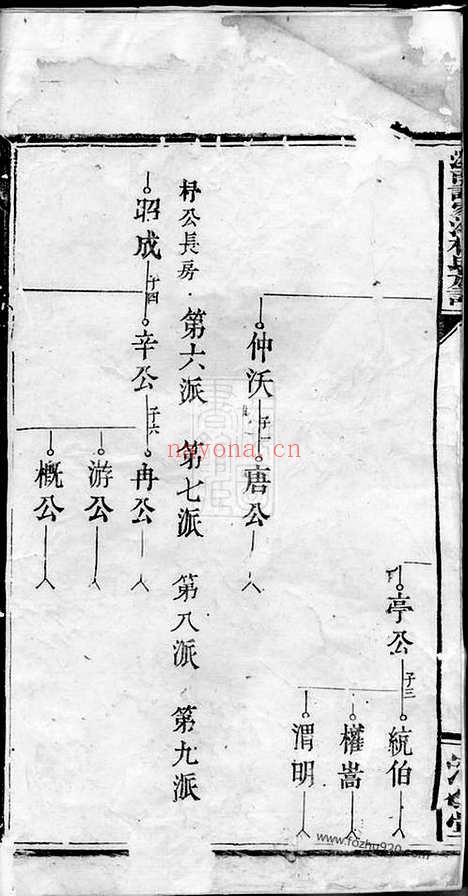 亭公
子三
統伯
權嵩
渭明
仲沃
子一
唐公
杼公長房 第六派 第七派 第八派 第九派
昭成
子四
辛公
子六
冉公
游公
概公
nayona.cn
www.fozhu920.com